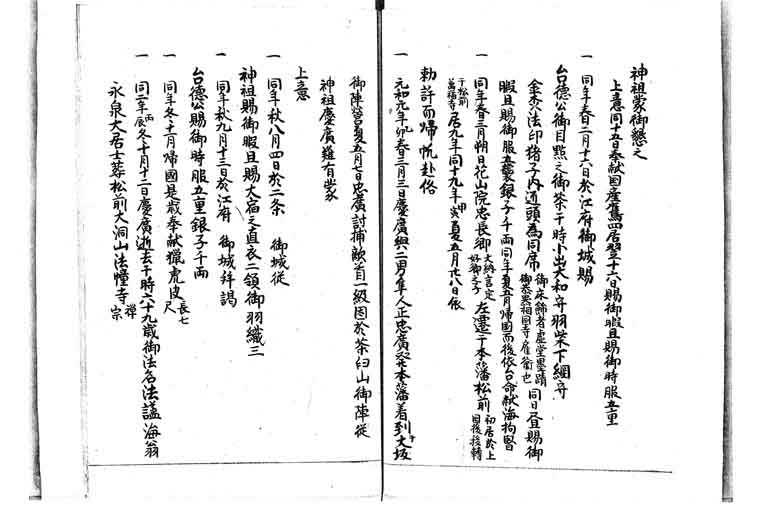 神祖蒙御懇之
上意同十五日奉献国産鷹四居翌十六日賜御暇且賜御時服五重
一 同年春二月十六日於江府御城賜
台徳公御目點之御茶于時小出大和守羽柴下総守
金森法印猪子内近頭為同席 御床餝者虚堂墨蹟 御茶器相国寺雁衝也 同日昼賜御
暇且賜御服五襲銀子千両同年夏五月帰國而後依台命献海狗腎
一 同年春三月朔日花山院忠長卿 大納言定好卿之子 左遷于本藩松前 初居於上国後移轉
于松前萬福寺 居九年同十九年甲寅夏五月廿八日依
勅許而帰帆赴洛
一 元和元年乙卯春三月三日慶廣與二男隼人正忠廣発本藩着到大坂
御陣営夏五月七日忠廣討捕敵首一級因於茶臼山御陣従
神祖慶廣難有蒙
上意
一 同年秋八月四日於二条 御城従
神祖賜御暇且賜大宿之直衣二領御羽織三
一 同年秋九月十三日於江府 御城拜謁
台徳公賜御時服五重銀子千両
一 同年冬十一月帰國是歳奉献獵虎皮 長七尺
一 同二年丙辰冬十月十二日慶廣逝去于時六十九歳御法名法諡海翁
永泉大居士葬松前大洞山法幢寺 禅宗